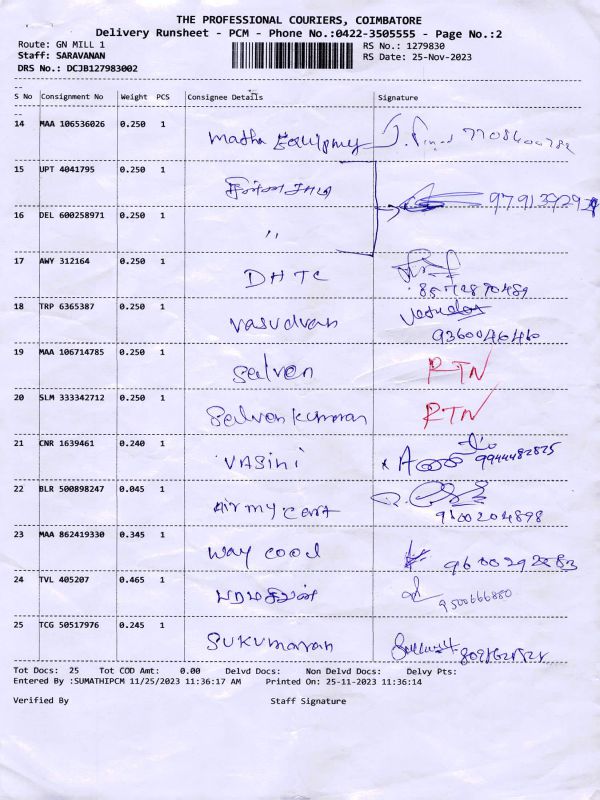 THE PROFESSIONAL COURIERS, COIMBATORE
Delivery Runsheet - PCM - Phone No.:0422-3505555 - Page No.:2
Route: GN MILL 1 RS No.: 1279830
Staff: SARAVANAN RS Date: 25-Nov-2023
DRS No.: DCJB127983002
S No Consignment No Weight PCS Consignee Details Signature
14 MAA 106536026 0.250 1
15 UPT 4041795 0.250 1 சின்னசாமி
16 DEL 600258971 0.250 1 "
17 AWY 312164 0.250 1 DHTC
18 TRP 6365387 0.250 1 vasudvan
9360046460
19 MAA 106714785 0.250 1 Selven RTN
20 SLM 333342712 0.250 1 Selvenkumaran RTN
21 CNR 1639461 0.240 1 VASINI 9944482825
22 BLR 500898247 0.045 1 Air my cart
9600204898
23 MAA 862419330 0.345 1 way cool
24 TVL 405207 0.465 1 பரமசிவன்
9500666880
25 TCG 50517976 0.245 1 SUKUMARAN
Tot Docs: 25 Tot COD Amt: 0.00 Delvd Docs: Non Delvd Docs: Delvy Pts:
Entered By :SUMATHIPCM 11/25/2023 11:36:17 AM Printed On: 25-11-2023 11:36:14
Verified By Staff Signature